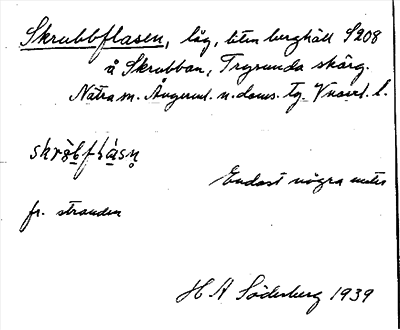 Skrubbflasen, låg, liten berghäll S208
å Skrubban, Trysunda skärg.
Nätra sn. Ångerml. n. doms. tg. Vnorrl. l.
Endast några meter
fr. stranden
H A Söderberg 1939